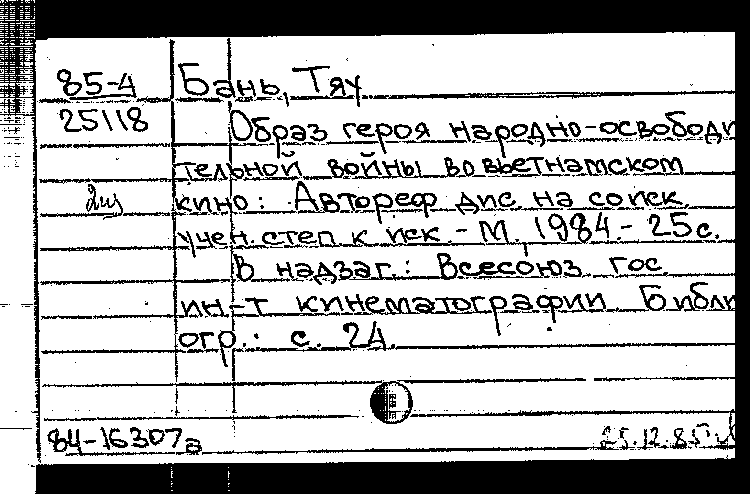 85-4 Бань, Тяу
25118 Образ героя народно-освободи
тельной войны во вьетнамском
кино: Автореф дис на соиск.
учен. степ к иск. - М., 1984. - 25 с.
В надзаг.: Всесоюз. гос.
ин-т кинематографии. Библи
огр.: с. 24.
84-16307а 25.12.85